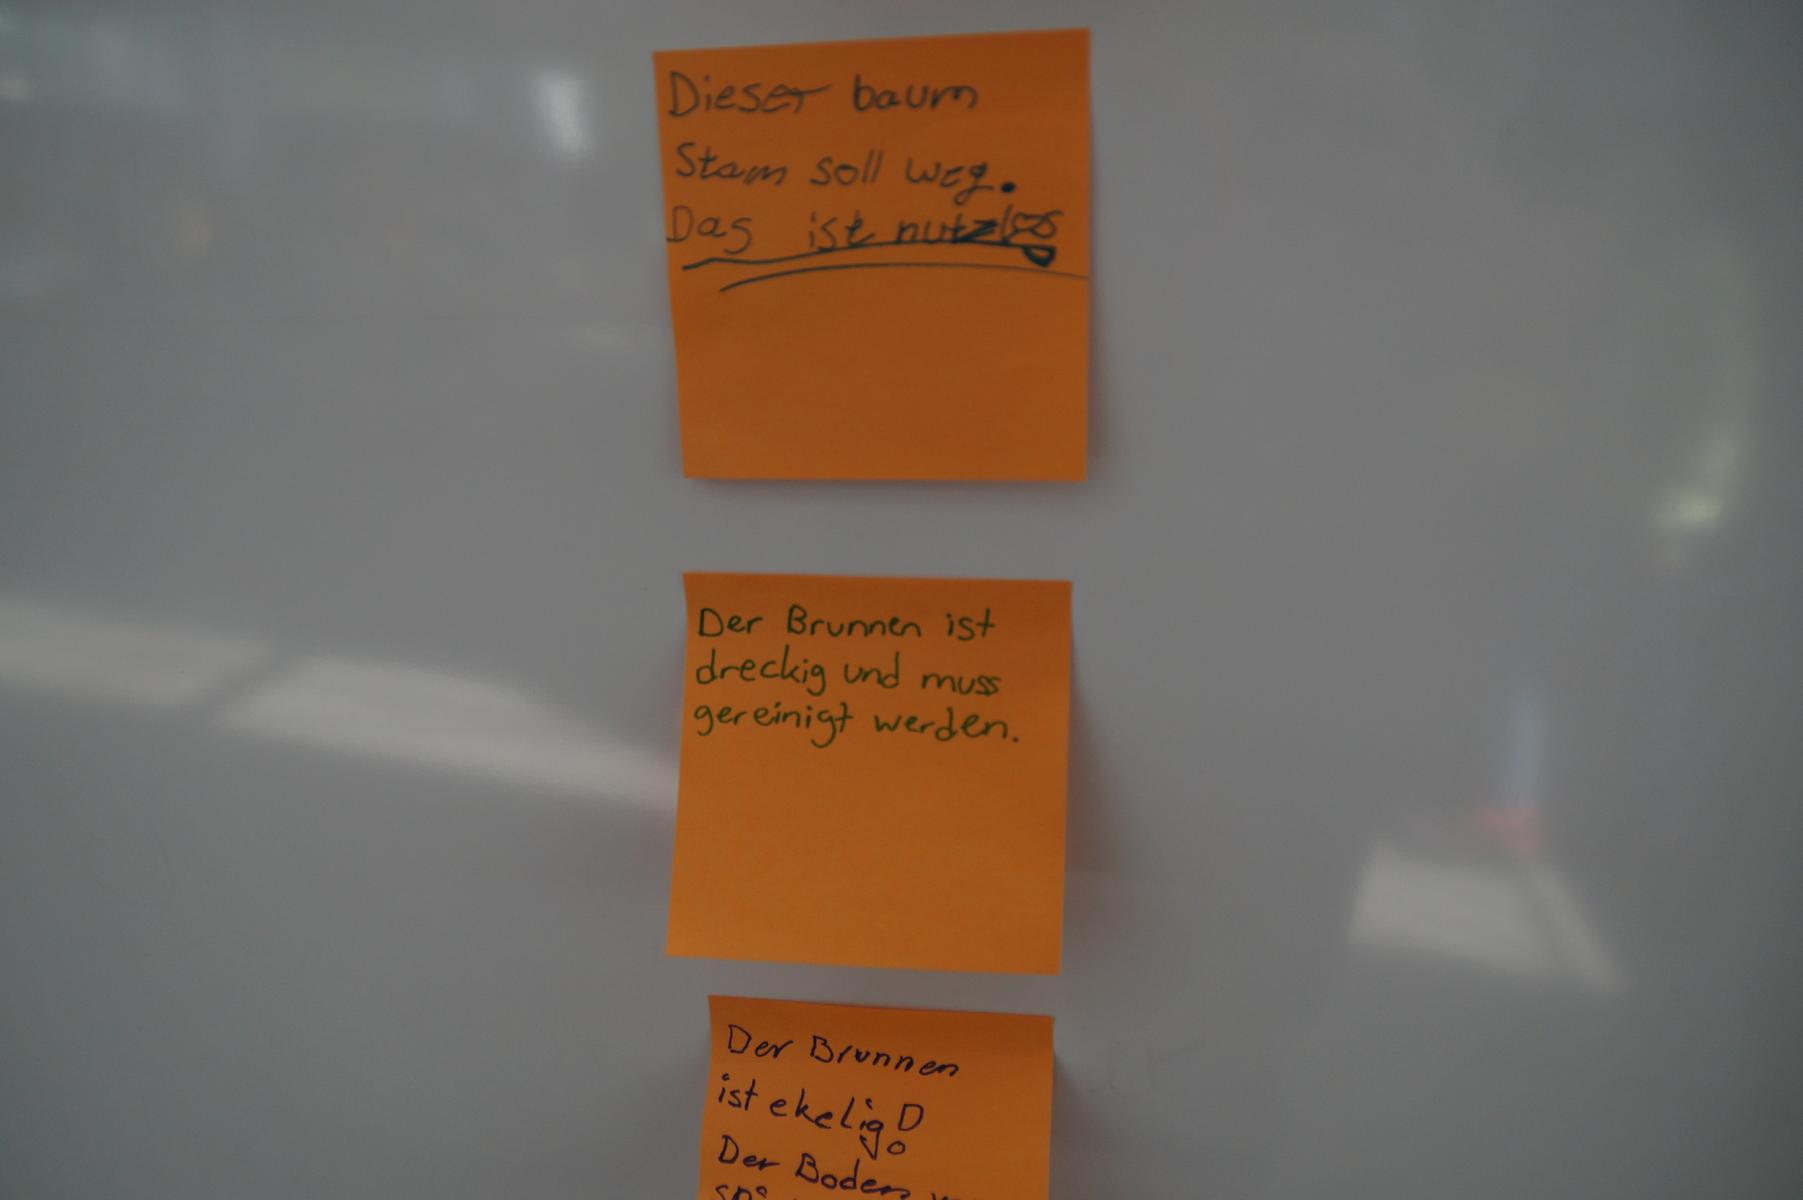 Dieser baum
Stam soll weg.
Das ist nutzlos
Der Brunnen ist
dreckig und muss
gereinigt werden.
Der Brunnen
ist ekelig!
Der Boden